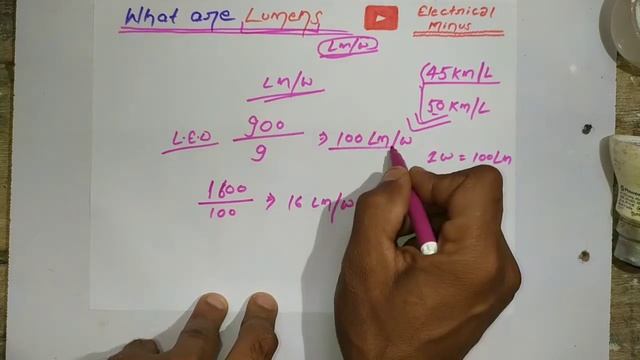 What are Lumens
Electrical
Minus
Lm/w
Lm/w
45 Km/L
50 Km/L
L.E.D 900/9 ⇒ 100 Lm/w
1w = 100Lm
1600/100 ⇒ 16 Lm/w